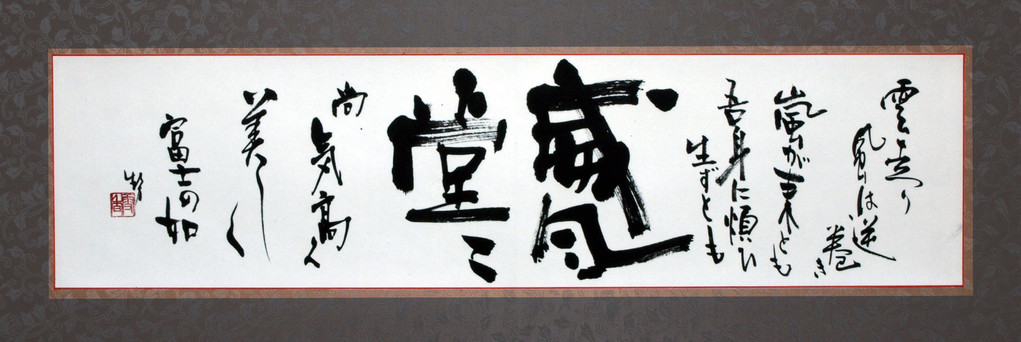 雲走り
風は逆
巻き
嵐が来とも
吾身に煩ひ
生ずとも
威風
堂々
尚
気高く
美しく
富士の如